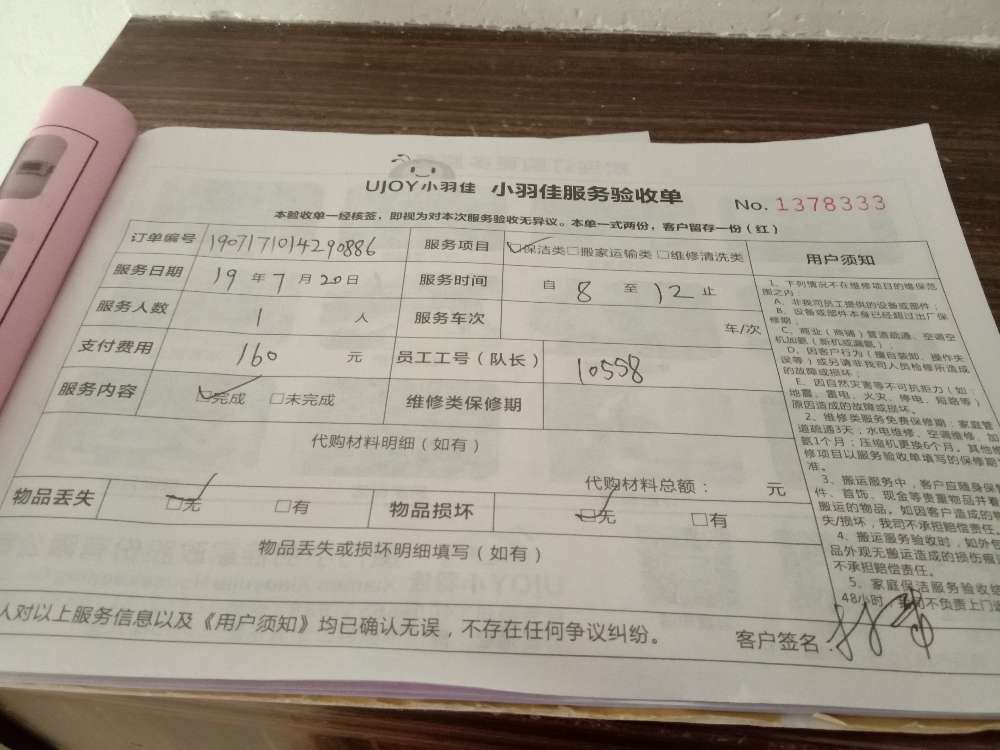 UJOY小羽佳 小羽佳服务验收单 No. 1378333
本验收单一经核签，即视为对本次服务验收无异议。本单一式两份，客户留存一份（红）
订单编号 1907171014290886 服务项目 ☑保洁类□搬家运输类□维修清洗类
服务日期 19年7月20日 服务时间 自 8 至 12 止
服务人数 1 人 服务车次 年/次
支付费用 160 元 员工工号（队长） 10558
服务内容 ☑完成 □未完成 维修类保修期
代购材料明细（如有）
代购材料总额： 元
物品丢失 ☑无 □有 物品损坏 ☑无 □有
物品丢失或损坏明细填写（如有）
人对以上服务信息以及《用户须知》均已确认无误，不存在任何争议纠纷。 客户签名：
用户须知
1、下列情况不在维修项目的维保范
围之内
A、非我司员工提供的设备或部件；
B、设备或部件本身已经超过出厂保
修期；
C、商业（商铺）管道疏通、空调空
机加氨（新机或漏氨）；
D、因客户行为（擅自装卸、操作失
误等）或另请非我司人员检修所造成
的故障或损坏；
E、因自然灾害等不可抗拒力（如：
地震、雷电、火灾、停电、短路等）
原因造成的故障或损坏。
2、维修类服务免费保修期：家庭管
道疏通3天；水电维修、空调维修、加
氨1个月；压缩机更换6个月。其他维
修项目以服务验收单填写的保修期
准。
3、搬运服务中，客户应随身保管
件、首饰、现金等贵重物品并看
搬运的物品。如因客户造成的
失/损坏，我司不承担赔偿责任。
4、搬运服务验收时，如外包
品外观无搬运造成的损伤痕
不承担赔偿责任。
5、家庭保洁服务验收
48小时，我司不负责上门